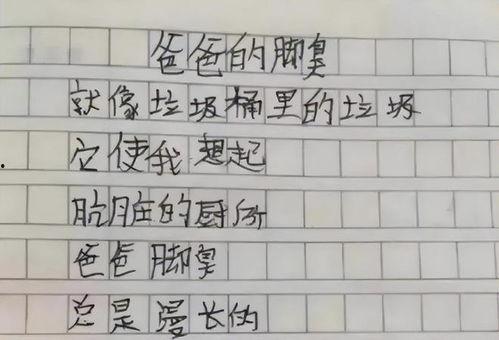 爸爸的脚臭
就像垃圾桶里的垃圾
它使我想起
肮脏的厨所
爸爸脚臭
总是漫长的